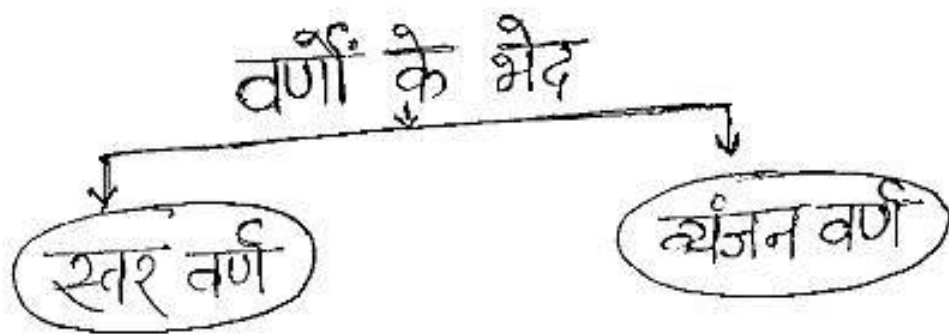 वर्णों के भेद
स्वर वर्ण
व्यंजन वर्ण